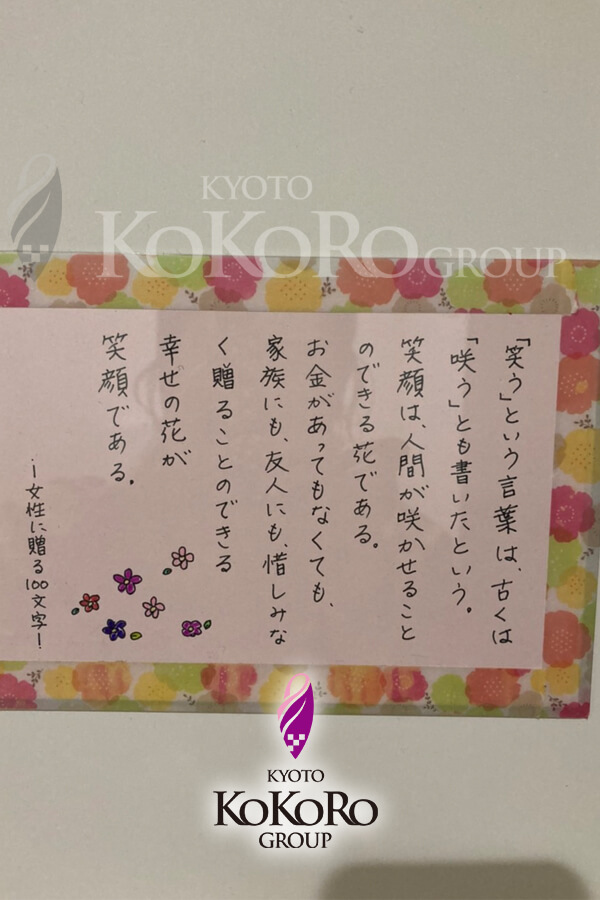 KYOTO
KOKORO GROUP
「笑う」という言葉は、古くは
「咲う」とも書いたという。
笑顔は、人間が咲かせること
のできる花である。
お金があってもなくても、
家族にも、友人にも、惜しみな
く贈ることのできる
幸せの花が
笑顔である。
ー女性に贈る100文字ー
KYOTO
KOKORO
GROUP